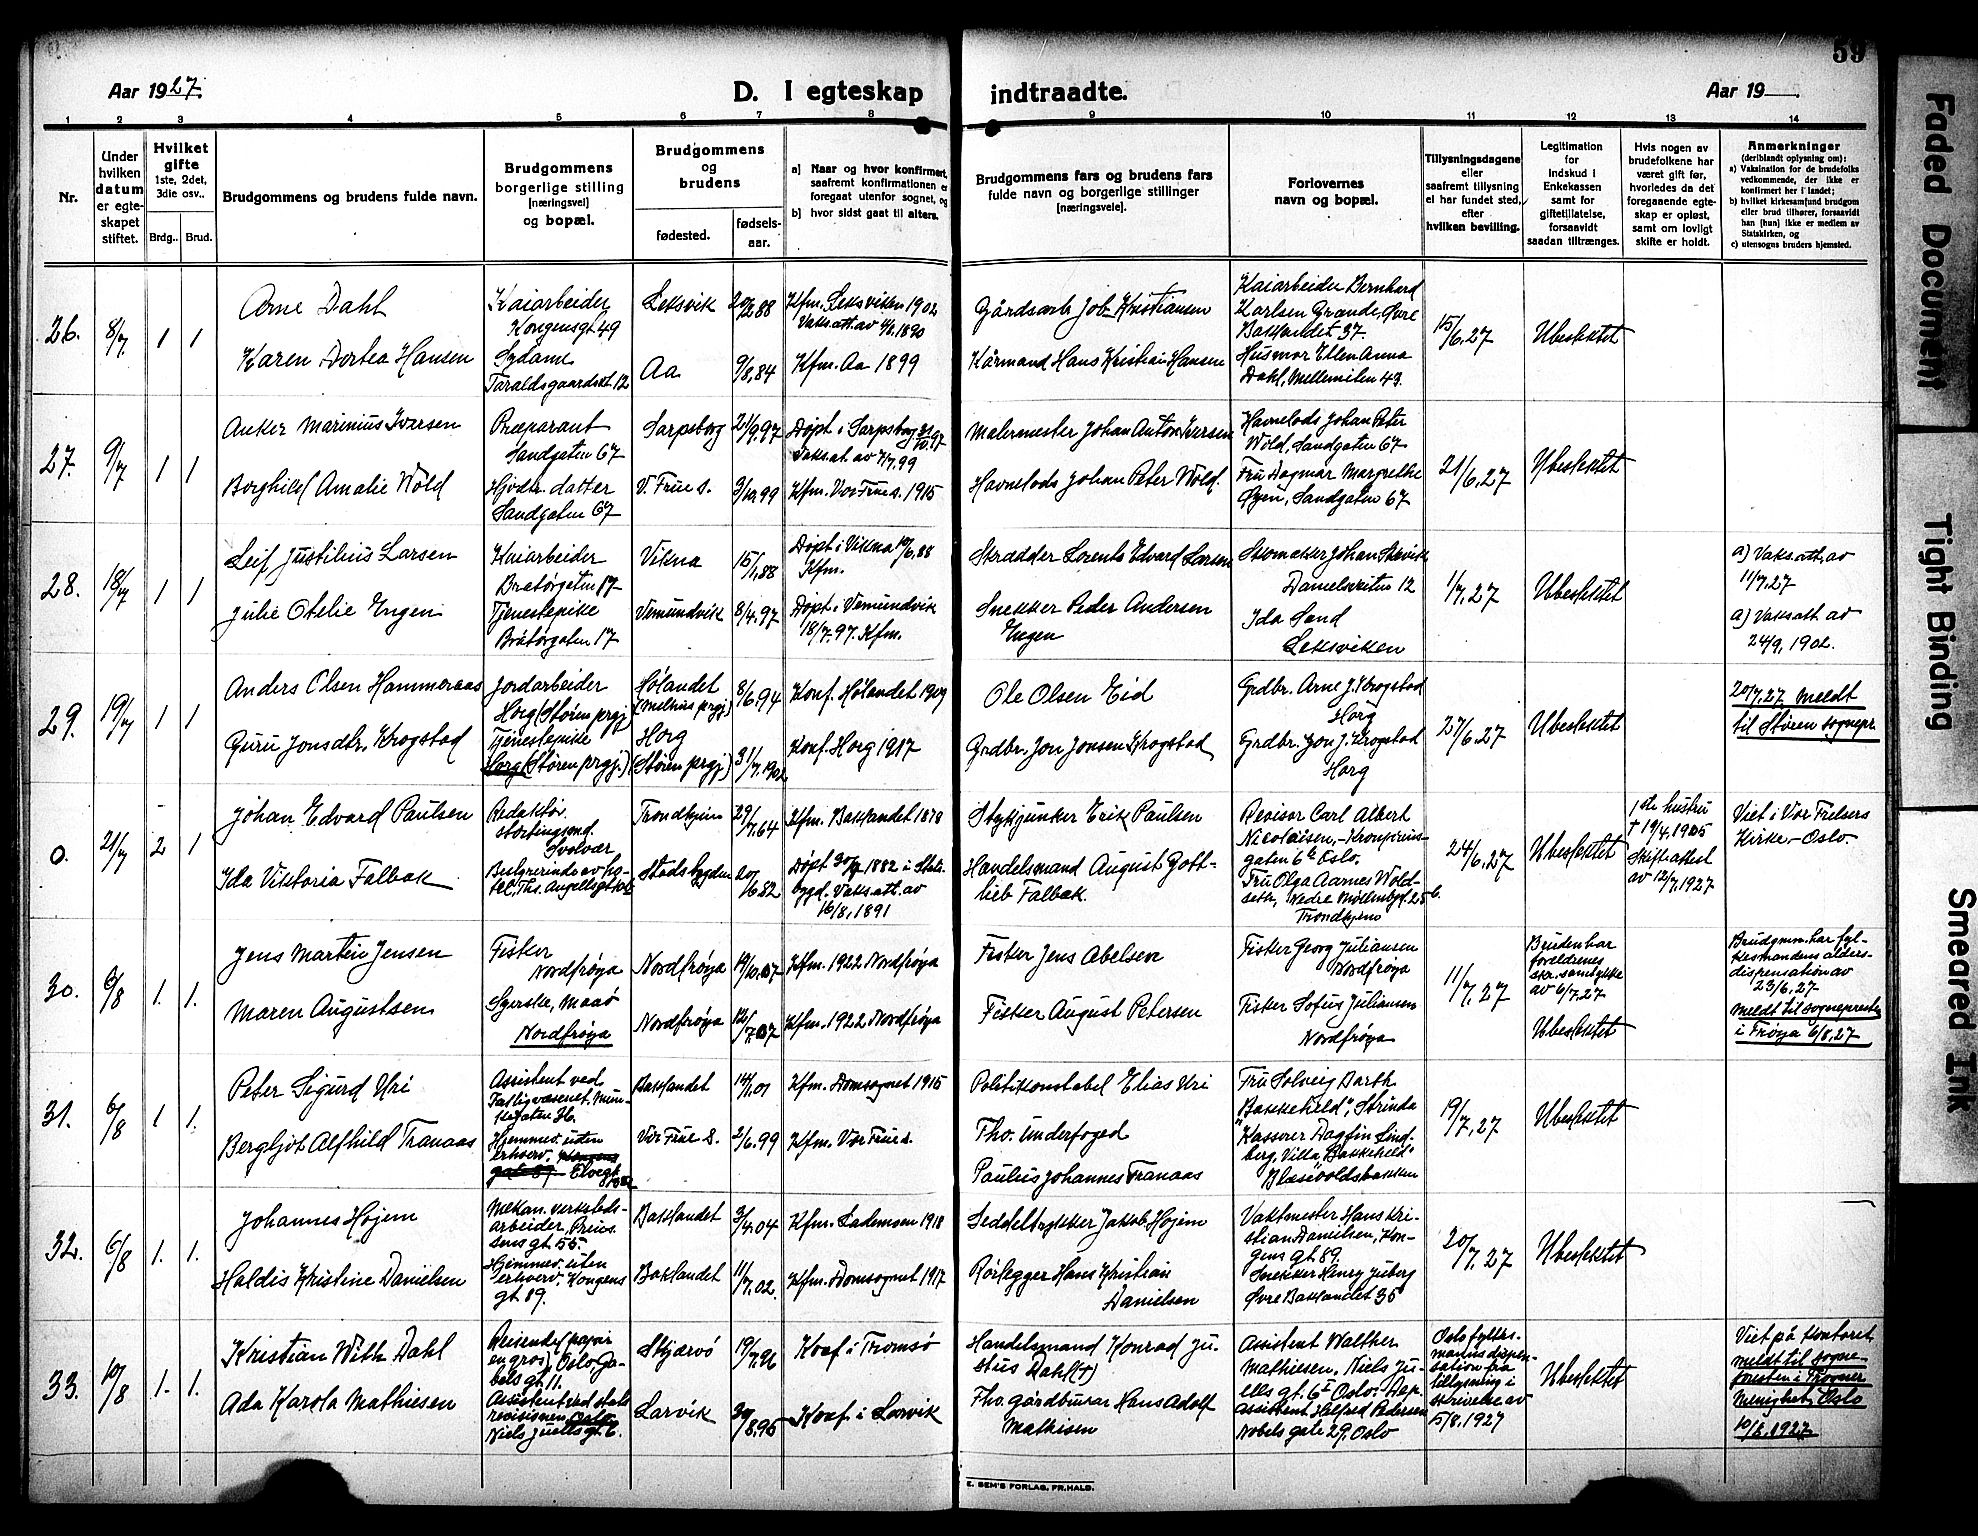 59
Aar 1927.
D. I egteskap indtraadte.
Aar 19
1 2 3 4 5 6 7 8 9 10 11 12 13 14
Nr.
Under
hvilken
datum
er egte-
skapet
stiftet.
Hvilket
gifte
1ste, 2det,
3die osv..
Brdg.. Brud.
Brudgommens og brudens fulde navn.
Brudgommens
borgerlige stilling
[næringsvei]
og bopæl.
Brudgommens
og
brudens
fødested.
fødsels-
aar.
a) Naar og hvor konfirmert,
saafremt konfirmationen er
foregaat utenfor sognet, og
b) hvor sidst gaat til alters.
Brudgommens fars og brudens fars
fulde navn og borgerlige stillinger
[næringsveie].
Forlovernes
navn og bopæl.
Tillysningsdagene
eller
saafremt tillysning
ei har fundet sted,
efter
hvilken bevilling.
Legitimation
for
indskud i
Enkekassen
samt for
giftetillatelse,
forsaavidt
saadan tiltrænges.
Hvis nogen av
brudefolkene har
været gift før,
hvorledes da det
foregaaende egte-
skap er opløst,
samt om lovligt
skifte er holdt.
Anmerkninger
(deriblandt oplysning om):
a) Vaksination for de brudefolks
vedkommende, der ikke er
konfirmert her i landet;
b) hvilket kirkesamfund brudgom
eller brud tilhører, forsaavidt
han (hun) ikke er medlem av
Statskirken, og
c) utensogns bruders hjemsted.
26. 8/7 1 1
Arne Dahl
Karen Dortea Hansen
Kaiarbeider
Kongensgt. 49
Sydame
Taraldsgaardsvt. 12
Leksvik
Aa
9/8.84
Kfm. Leksviken 1902
Kfm. Aa 1899
Gårdsarb. Job Kristiansen
Kårmand Hans Kristian Hansen
Kaiarbeider Bernhard
Karlsen Grande, Øvre
Bakklandet 37.
Husmor Ellen Anna
Dahl, Mellemilen 43.
15/6.27
Ubeskektet
27. 9/7 1 1
Anker Marinius Iversen
Borghild Amalie Wold
Præparant
Sandgaten 67
Hjvds. datter
Sandgaten 67
Sarpsborg
V. Frue s.
21/9.97
3/10.99
Døpt i Sarpsborg 31/10.97
Vaks.at. av 7/7.99
Kfm. Vor Frue s. 1915
Malermester Johan Anton Iversen
Havnelods Johan Peter Wold.
Havnelods Johan Peter
Wold, Sandgaten 67
Fru Dagmar Margrethe
Øyen, Sandgaten 67
21/6.27
Ubeskektet
28. 18/7 1 1
Leif Justinius Larsen
Julie Otelie Engen
Kaiarbeider
Bratørgaten 17
Tjenestepike
Bratørgaten 17
Vikna
Vemundvik
15/1.88
8/4.97
Døpt i Vikna 10/6.88
Kfm.
Døpt i Vemundvik
18/7.97. Kfm.
Skrædder Lorents Edvard Larsen
Snekker Peder Andersen
Engen
Skomaker Johan Skevik
Danielsveiten 12
Ida Sand
Leksviken
1/7.27
Ubeskektet
a) Vaks.att. av
11/7.27
a) Vaks.att. av
24/9. 1902.
29. 19/7 1 1
Anders Olsen Hammeraas
Guru Jonsdtr. Krogstad
Jordarbeider
Horg (Støren prgj)
Tjenestepike
Horg (Støren prgj.)
Hølandet
(Melhus prgj)
Horg
(Støren prgj)
8/6.94
31/7.1902
Konf. Hølandet 1909
Konf. Horg 1917
Ole Olsen Eid
Grdbr. Jon Jonsen Krogstad
Grdbr. Arne J. Krogstad
Horg
Grdbr. Jon J. Krogstad
Horg
27/6.27
Ubeskektet
20/7.27 Meldt
til Støren sognepr.
0. 21/7 2 1
Johan Edvard Paulsen
Ida Viktoria Falbak
Redaktør
stortingsmd.
Svolvær
Bestyrerinde av ho-
tel,
Trondhjem
Stadsbygden
29/7.64
Kfm. Bakklandet 1878
Døpt 30/7 1882 i Stads-
bygd. Vaks.att. av
16/8.1891
Stykjunker Erik Paulsen
Handelsmand August Gott-
lieb Falbak.
Revisor Carl Albert
Nicolaisen, Kronprins-
gaten 6b Oslo.
Fru Olga Aarnes Wold-
seth, Nedre Møllenbgt. 25 b.
Trondhjem
24/6.27
Ubeskektet
1ste hustru
† 19/4.1905
Skifteattest
av 12/7.1927
Viet i Vor Frelsers
Kirke - Oslo.
30. 6/8 1. 1.
Jens Martin Jensen
Maren Augustsen
Fisker
Nordfrøya
Syerske, Maaø
Nordfrøya
Nordfrøya
Nordfrøya
19/10.07
12/7.07
Kfm. 1922 Nordfrøya
Kfm. 1922 Nordfrøya
Fisker Jens Abelsen
Fisker August Petersen
Fisker Georg Juliansen
Nordfrøya
Fisker Sofus Juliansen
Nordfrøya
11/7.27
Bruden har
foreldrenes
skr. samtykke
av 6/7.27
Ubeskektet
Brudgmm. har fyl-
kesmandens alders-
dispensation av
23/6.27
Meldt til sogneprest
i Frøya 6/8.27
31. 6/8 1 1.
Peter Sigurd Uri
Bergljot Alfhild Tranaas
Assistent ved
Fattigvæsenet, Mun-
kegaten 36.
Hjemmev. uten
erhverv. Kongens
gate 89
Bakklandet
Vor Frue S.
14/1.01
2/6.99
Kfm. Domsognet 1915
Kfm. Vor Frue s.
Politikonstabel Elias Uri
Fho. Underfoged
Paulus Johannes Tranaas
Fru Solveig Barth
"Bakkeheld", Strinda
Kasserer Dagfin Lind-
berg, Villa "Bakkeheld"
Blæsevoldsbakken
19/7.27
Ubeskektet
32. 6/8 1. 1.
Johannes Højem
Haldis Kristine Danielsen
Mekan. verksteds-
arbeider, Prins-
sens gt. 55.
Hjemmev. uten
erhverv. Kongens
gt. 89.
Bakklandet
Baklandet
3/4.04
11/7.02.
Kfm. Lademoen 1918
Kfm. Domsognet 1917
Seddeltrykker Jakob Højem
Rørlegger Hans Kristian
Danielsen
Vaktmester Hans Kri-
stian Danielsen, Kon-
gens gt. 89.
Snekker Henry Juberg
Øvre Baklandet 35
20/7.27
Ubeskektet
33. 10/8 1. 1.
Kristian With Dahl
Ada Karola Mathiesen
Reisende (papir
en gros) Oslo, Ga-
bels gt. 11.
Assistent ved stats
revisionen, Oslo
Niels Juels gt. 6.
Skjærvø
Larvik
19/7.96
30/8.95
Konf. i Tromsø
Konf. i Larvik
Handelsmand Konrad Ju-
stus Dahl (†)
Fho. gårdbruker Hans Adolf
Mathisen
Assistent Walther
Mathiesen, Niels Ju-
els gt. 6 I Oslo.
assistent Halfred Pedersen
Nobels gate 29, Oslo
Oslo fylkes-
manns dispen-
sation fra
tillysning i
skrivelse av
5/8.1927
Ubeskektet
Viet på kontoret
meldt til sogne-
presten i Frogner
Menighet, Oslo
10/8.1927
E. SEM'S FORLAG, FR.HALD.
Faded Document
Tight Binding
Smeared Ink